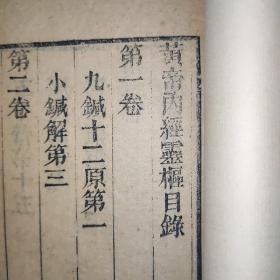 黃帝內經靈樞目錄
第一卷
九鍼十二原第一
小鍼解第三
第二卷